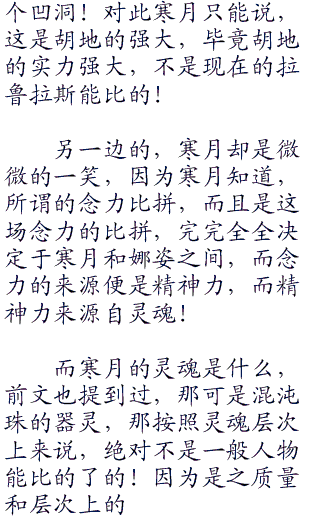 个凹洞！对此寒月只能说，
这是胡地的强大，毕竟胡地
的实力强大，不是现在的拉
鲁拉斯能比的！
另一边的，寒月却是微
微的一笑，因为寒月知道，
所谓的念力比拼，而且是这
场念力的比拼，完完全全决
定于寒月和娜姿之间，而念
力的来源便是精神力，而精
神力来源自灵魂！
而寒月的灵魂是什么，
前文也提到过，那可是混沌
珠的器灵，那按照灵魂层次
上来说，绝对不是一般人物
能比的了的！因为是之质量
和层次上的